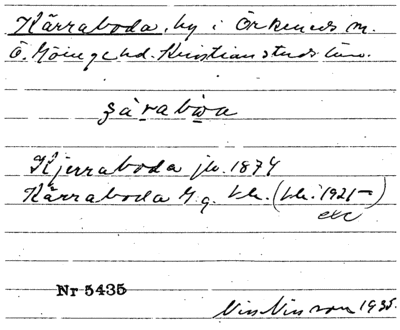 Kärraboda, by i Örkeneds sn.
Ö. Göinge hd. Kristianstads län.
Kjerraboda jb. 1874
Kärraboda G.g. kk. (kk. 1921-
etc
Nr 5435
Nils Nilsson 1935.